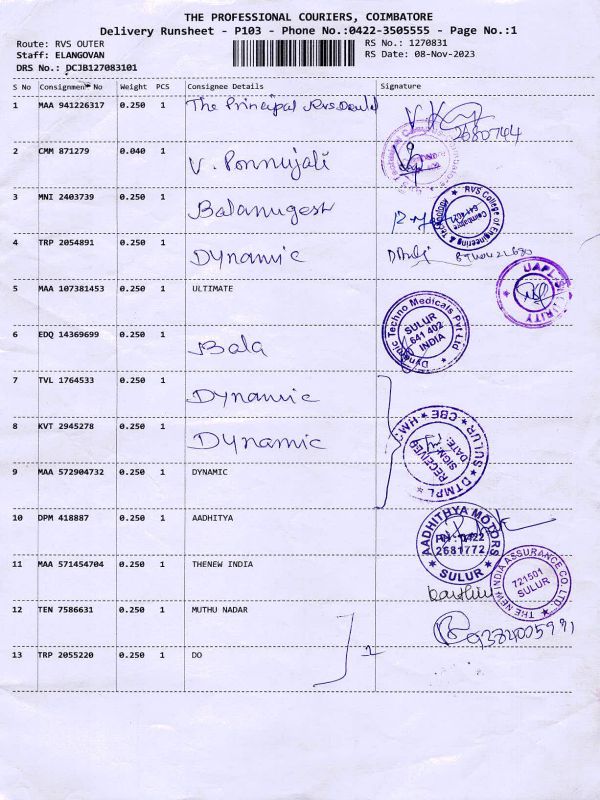 THE PROFESSIONAL COURIERS, COIMBATORE
Delivery Runsheet - P103 - Phone No.:0422-3505555 - Page No.:1
Route: RVS OUTER
Staff: ELANGOVAN
DRS No.: DCJB127083101
RS No.: 1270831
RS Date: 08-Nov-2023
S No Consignment No Weight PCS Consignee Details Signature
1 MAA 941226317 0.250 1 The Principal Rvs
2680744
2 CMM 871279 0.040 1 V. Ponnujali
3 MNI 2403739 0.250 1 Balamugesh
RVS College of Engineering & Technology Coimbatore 641 402
4 TRP 2054891 0.250 1 Dynamic
5 MAA 107381453 0.250 1 ULTIMATE
UAPL-SECURITY
Dynamic Techno Medicals Pvt Ltd SULUR 641 402 INDIA
6 EDQ 14369699 0.250 1 Bala
7 TVL 1764533 0.250 1 Dynamic
8 KVT 2945278 0.250 1 Dynamic
DTMPL HMC SULUR CBE RECEIVED SIGN: DATE:
9 MAA 572904732 0.250 1 DYNAMIC
10 DPM 418887 0.250 1 AADHITYA
AADHITHYA MOTORS PH : 0422 2681772 SULUR
11 MAA 571454704 0.250 1 THENEW INDIA
THE NEW INDIA ASSURANCE CO. LTD. 721501 SULUR
12 TEN 7586631 0.250 1 MUTHU NADAR
9384005991
13 TRP 2055220 0.250 1 DO
2